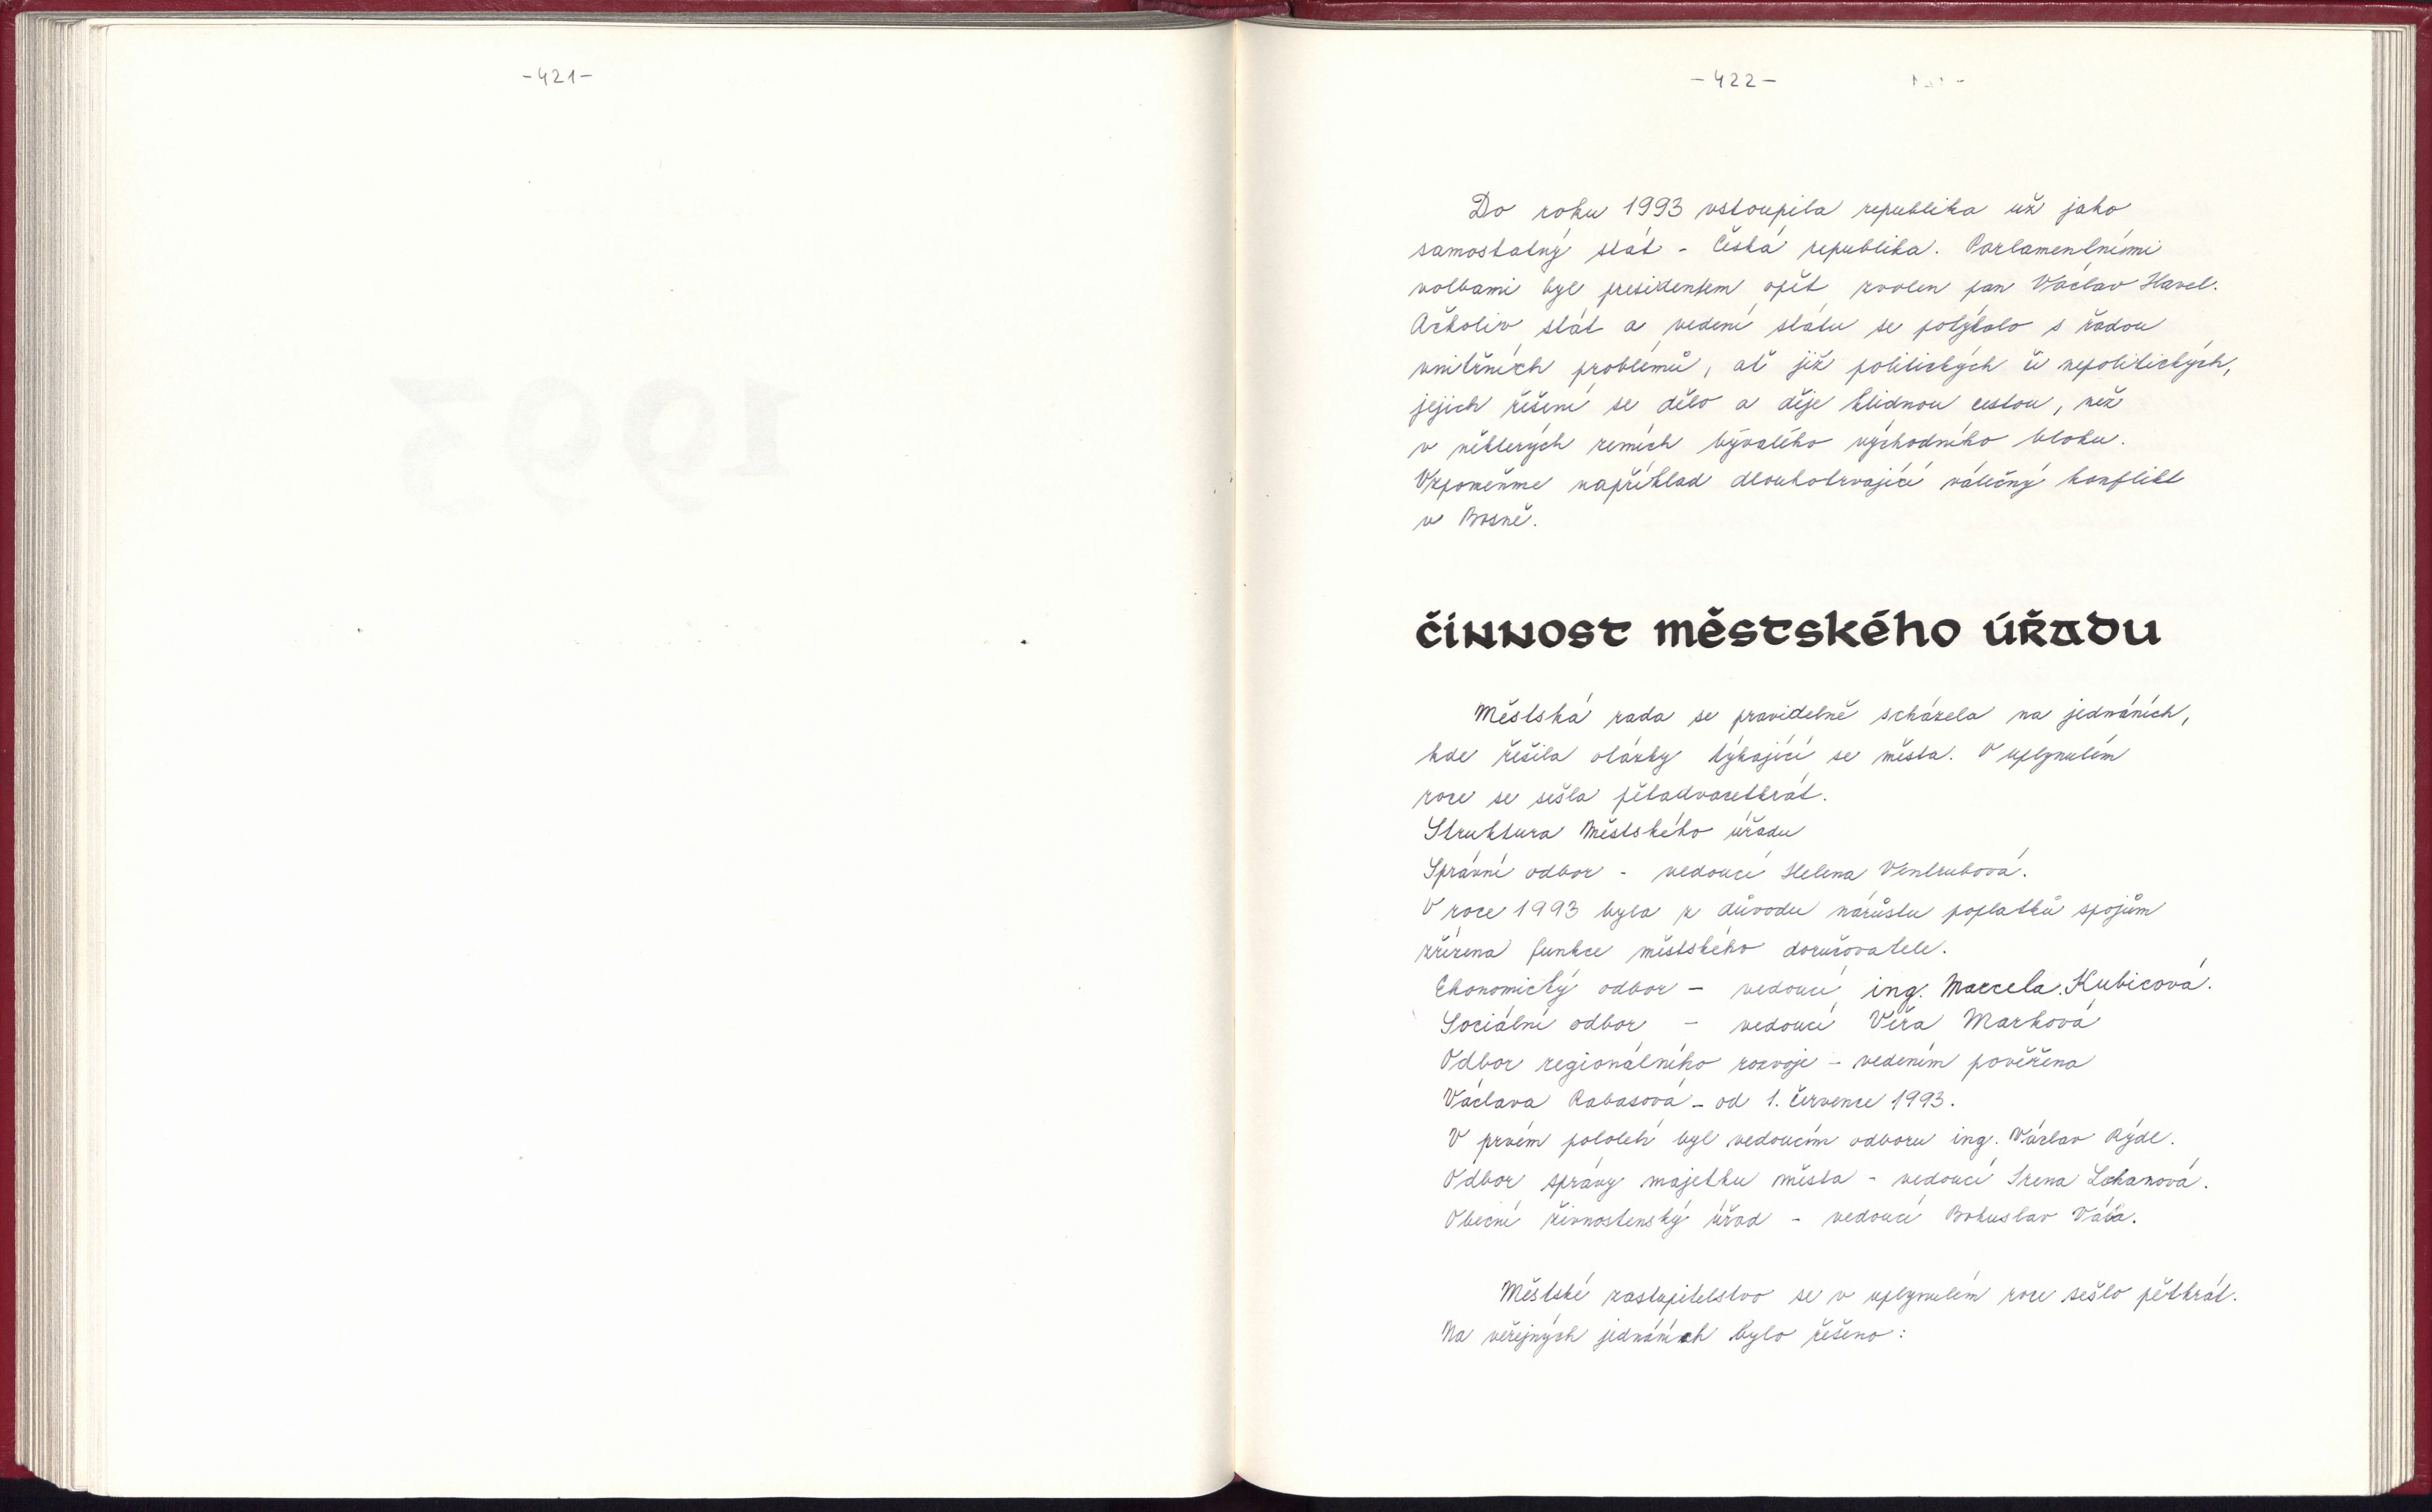 -421-
-422-
Do roku 1993 vstoupila republika už jako
samostatný stát - Česká republika. Parlamentními
volbami byl presidentem opět zvolen pan Václav Havel.
Ačkoliv stát a vedení státu se potýkalo s řadou
vnitřních problémů, ať již politických či nepolitických,
jejich řešení se dělo a děje klidnou cestou, než
v některých zemích bývalého východního bloku.
Vzpomeňme například dlouhotrvající válečný konflikt
v Bosně.
činnost městského úřadu
Městská rada se pravidelně scházela na jednáních,
kde řešila otázky týkající se města. V uplynulém
roce se sešla pětadvacetkrát.
Struktura Městského úřadu
Správní odbor - vedoucí Helena Ventrubová.
V roce 1993 byla z důvodu nárůstu poplatků spojům
zřízena funkce městského doručovatele.
Ekonomický odbor - vedoucí ing. Marcela Kubicová.
Sociální odbor - vedoucí Věra Marková
Odbor regionálního rozvoje - vedením pověřena
Václava Rabasová - od 1. července 1993.
V prvém pololetí byl vedoucím odboru ing. Václav Rýdl.
Odbor správy majetku města - vedoucí Irena Lohanová.
Obecní živnostenský úřad - vedoucí Bohuslav Váňa.
Městské zastupitelstvo se v uplynulém roce sešlo pětkrát.
Na veřejných jednáních bylo řešeno: